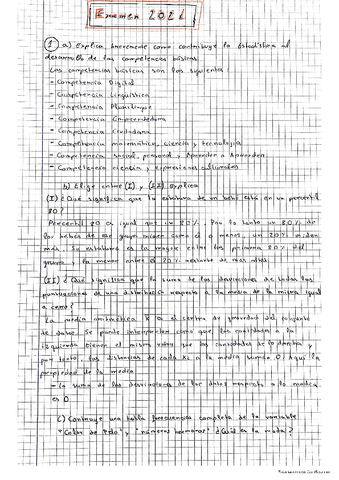 Examen 2021
1 a) Explica brevemente como contribuye la estadística al
desarrollo de las competencias básicas.
Las competencias básicas son las siguientes:
- Competencia Digital
- Competencia Lingüística
- Competencia Plurilingüe
- Competencia Emprendedora
- Competencia Ciudadana
- Competencia matemática, ciencia y tecnología
- Competencia social, personal y Aprender a Aprender
- Competencia ciencia y expresiones culturales
b) Elige entre (I) y (II) explica
(I) ¿Qué significa que la estatura de un bebé está en un percentil
80?
Percentil 80 es igual que un 80%. Por lo tanto un 80% de
los bebés de ese grupo miden como él o menos, un 20% miden
más. Su estatura es la mayor entre los primeros 80% del
grupo y la menor entre el 20% restante de más altos.
(II) ¿Qué significa que la suma de las desviaciones de todas las
puntuaciones de una distribución respecto a la media de la misma igual
a cero?
La media aritmética es el centro de gravedad del conjunto
de datos. Se puede interpretar como que las cantidades a la
izquierda tienen el mismo que las cantidades de la derecha y
por tanto, las distancias de cada xi a la media suman 0. Aquí la
propiedad de la media
- La suma de las desviaciones de los datos respecto a la media
es 0
c) Construye una tabla frecuencia completa de la variable
"Color de Pelo" y "número hermanos" ¿Cuál es la moda?